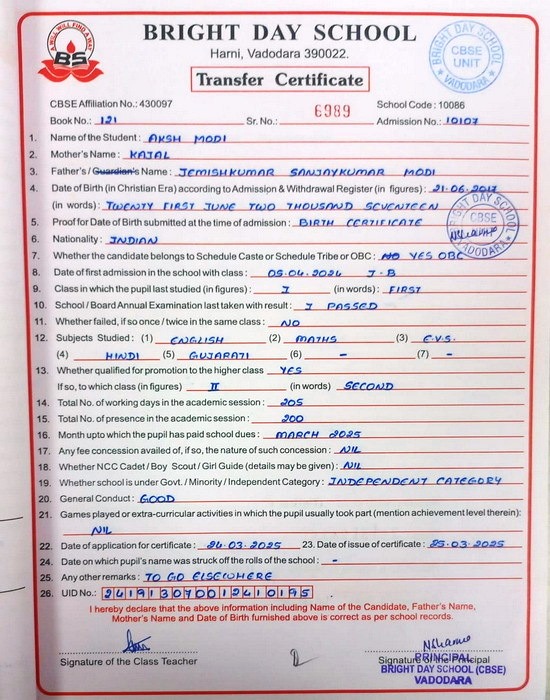 A WILL WILL FIND A WAY
BS
BRIGHT DAY SCHOOL
Harni, Vadodara 390022.
Transfer Certificate
BRIGHT DAY SCHOOL
CBSE
UNIT
VADODARA
CBSE Affiliation No.: 430097
School Code : 10086
Book No.: 121 Sr. No.: 6989 Admission No.: 10107
1. Name of the Student : AKSH MODI
2. Mother's Name : KAJAL
3. Father's / Guardian's Name : JEMISHKUMAR SANJAYKUMAR MODI
4. Date of Birth (in Christian Era) according to Admission & Withdrawal Register (in figures) : 21-06-2017
(in words) : TWENTY FIRST JUNE TWO THOUSAND SEVENTEEN
5. Proof for Date of Birth submitted at the time of admission : BIRTH CERTIFICATE
BRIGHT DAY SCHOOL
CBSE
VADODARA
6. Nationality : INDIAN
7. Whether the candidate belongs to Schedule Caste or Schedule Tribe or OBC : NO YES OBC
8. Date of first admission in the school with class : 05.04.2024 I-B
9. Class in which the pupil last studied (in figures) : I (in words) : FIRST
10. School / Board Annual Examination last taken with result : I PASSED
11. Whether failed, if so once / twice in the same class : NO
12. Subjects Studied : (1) ENGLISH (2) MATHS (3) E.V.S.
(4) HINDI (5) GUJARATI (6) - (7) -
13. Whether qualified for promotion to the higher class YES
If so, to which class (in figures) II (in words) SECOND
14. Total No. of working days in the academic session : 205
15. Total No. of presence in the academic session : 200
16. Month upto which the pupil has paid school dues : MARCH 2025
17. Any fee concession availed of, if so, the nature of such concession : NIL
18. Whether NCC Cadet / Boy Scout / Girl Guide (details may be given) : NIL
19. Whether school is under Govt. / Minority / Independent Category : INDEPENDENT CATEGORY
20. General Conduct : GOOD
21. Games played or extra-curricular activities in which the pupil usually took part (mention achievement level therein):
NIL
22. Date of application for certificate : 24-03-2025 23. Date of issue of certificate : 25-03-2025
24. Date on which pupil's name was struck off the rolls of the school : -
25. Any other remarks : TO GO ELSEWHERE
26. UID No.: 241913070012410195
I hereby declare that the above information including Name of the Candidate, Father's Name,
Mother's Name and Date of Birth furnished above is correct as per school records.
Signature of the Class Teacher
Signature of the Principal
PRINCIPAL
BRIGHT DAY SCHOOL (CBSE)
VADODARA